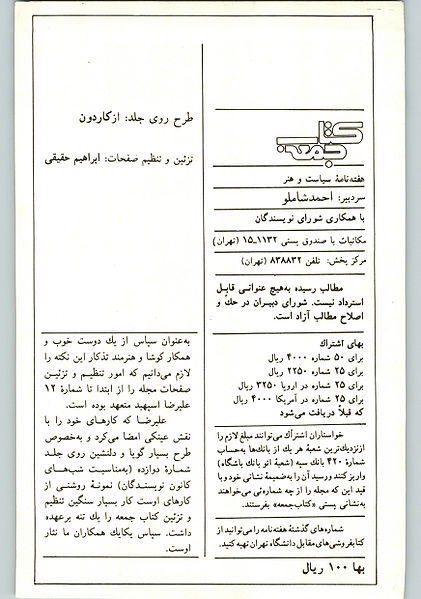 کتاب جمعه
هفته‌نامهٔ سیاست و هنر
سردبیر: احمد شاملو
با همکاری شورای نویسندگان
مکاتبات با صندوق پستی ۱۱۳۲ـ۱۵ (تهران)
مرکز پخش: تلفن ۸۳۸۸۳۲ (تهران)
مطالب رسیده به‌هیچ عنوانی قابل
استرداد نیست. شورای دبیران در حک و
اصلاح مطالب آزاد است.
بهای اشتراك
برای ۵۰ شماره ۴۰۰۰ ریال
برای ۲۵ شماره ۲۲۵۰ ریال
برای ۲۵ شماره در اروپا ۳۲۵۰ ریال
برای ۲۵ شماره در آمریکا ۴۰۰۰ ریال
که قبلاً دریافت می‌شود
خواستاران اشتراك می‌توانند مبلغ لازم را
ازنزدیك‌ترین شعبهٔ هر یك از بانك‌ها به‌حساب
شمارهٔ ۴۲۰ بانك سپه (شعبهٔ اتو بانك باشگاه)
واریز کنند و رسید آن را به‌ضمیمهٔ نشانی خود و با
قید این که مجله را از چه شماره‌ئی می‌خواهند
به‌نشانی پستی «کتاب‌جمعه» بفرستند.
شماره‌های گذشتهٔ هفته‌نامه را می‌توانید از
کتابفروشی‌های مقابل دانشگاه تهران تهیه کنید.
بها ۱۰۰ ریال
طرح روی جلد: از کاردون
تزئین و تنظیم صفحات: ابراهیم حقیقی
به‌عنوان سپاس از یك دوست خوب و
همکار کوشا و هنرمند تذکار این نکته را
لازم می‌دانیم که امور تنظیم و تزئین
صفحات مجله را از ابتدا تا شمارهٔ ۱۲
علیرضا اسپهبد متعهد بوده است.
علیرضا که کارهای خود را با
نقش عینکی امضا می‌کرد و به‌خصوص
طرح بسیار گویا و دلنشین روی جلد
شمارهٔ دوازده (به‌مناسبت شب‌های
کانون نویسندگان) نمونهٔ روشنی از
کارهای اوست کار بسیار سنگین تنظیم
و تزئین کتاب جمعه را یك تنه برعهده
داشت. سپاس یکایك همکاران ما نثار
اوست.